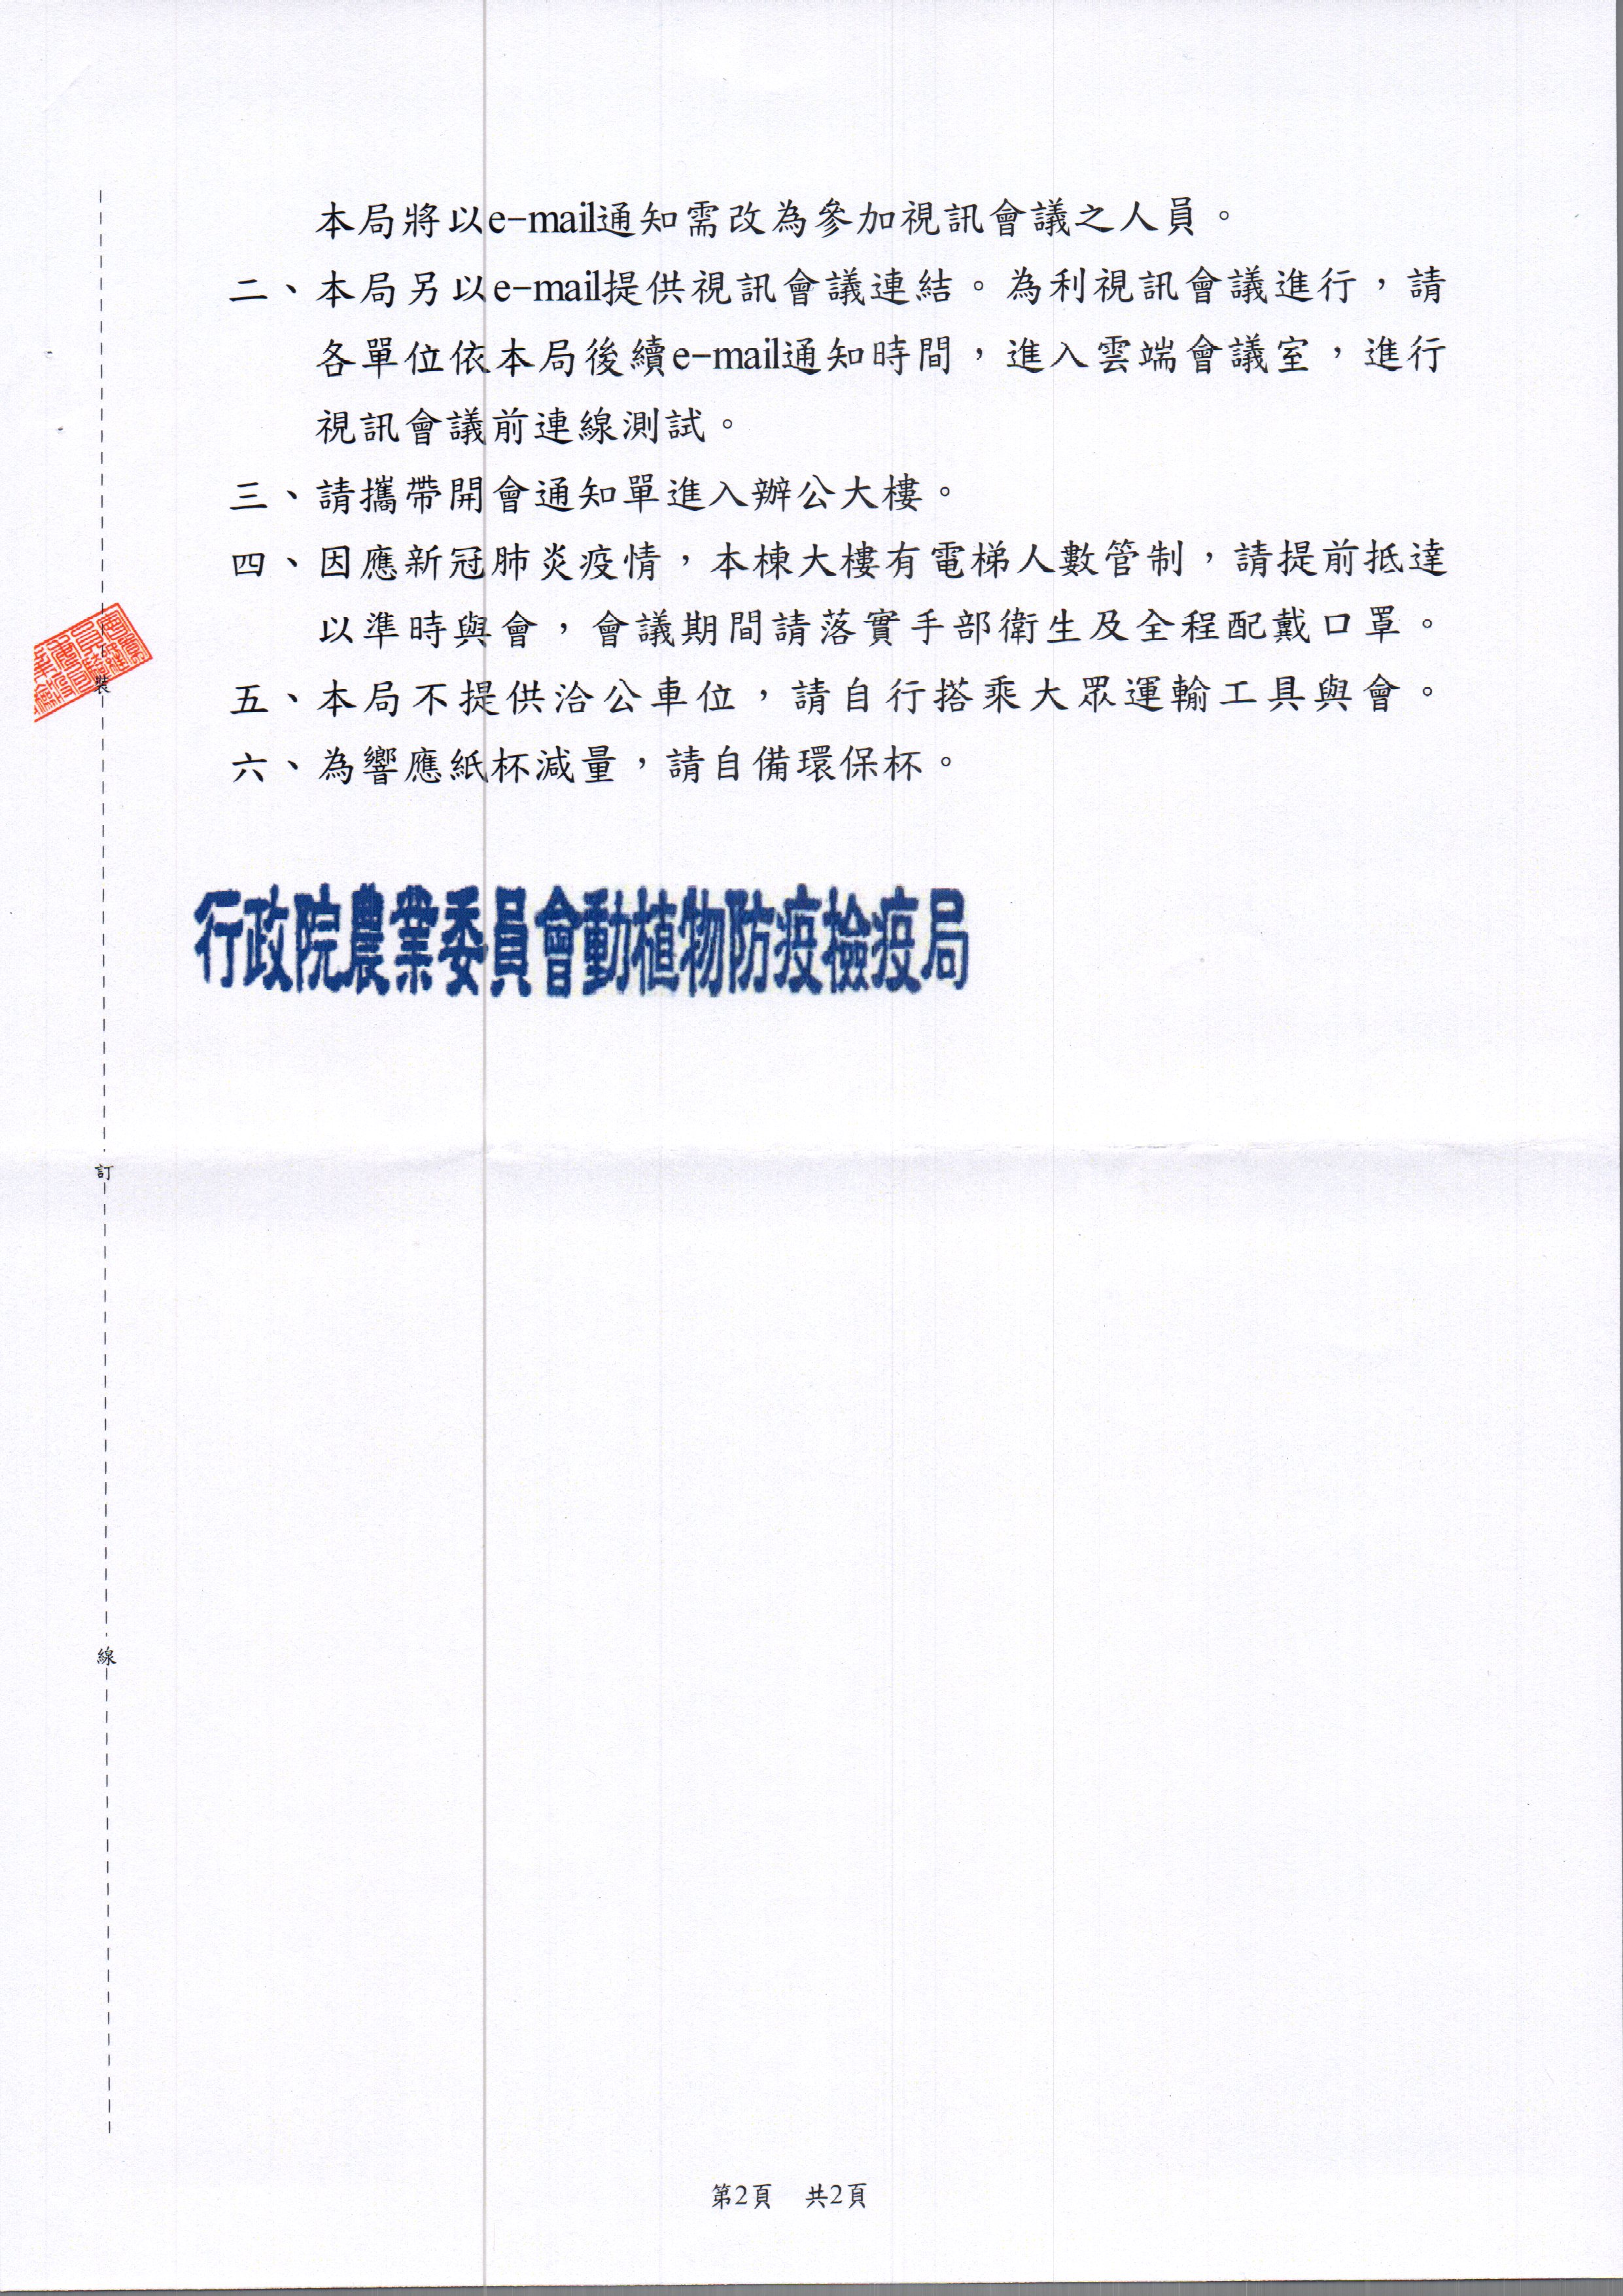 本局將以e-mail通知需改為參加視訊會議之人員。
二、本局另以e-mail提供視訊會議連結。為利視訊會議進行，請
各單位依本局後續e-mail通知時間，進入雲端會議室，進行
視訊會議前連線測試。
三、請攜帶開會通知單進入辦公大樓。
四、因應新冠肺炎疫情，本棟大樓有電梯人數管制，請提前抵達
以準時與會，會議期間請落實手部衛生及全程配戴口罩。
五、本局不提供洽公車位，請自行搭乘大眾運輸工具與會。
六、為響應紙杯減量，請自備環保杯。
行政院農業委員會動植物防疫檢疫局
裝
訂
線
第2頁 共2頁